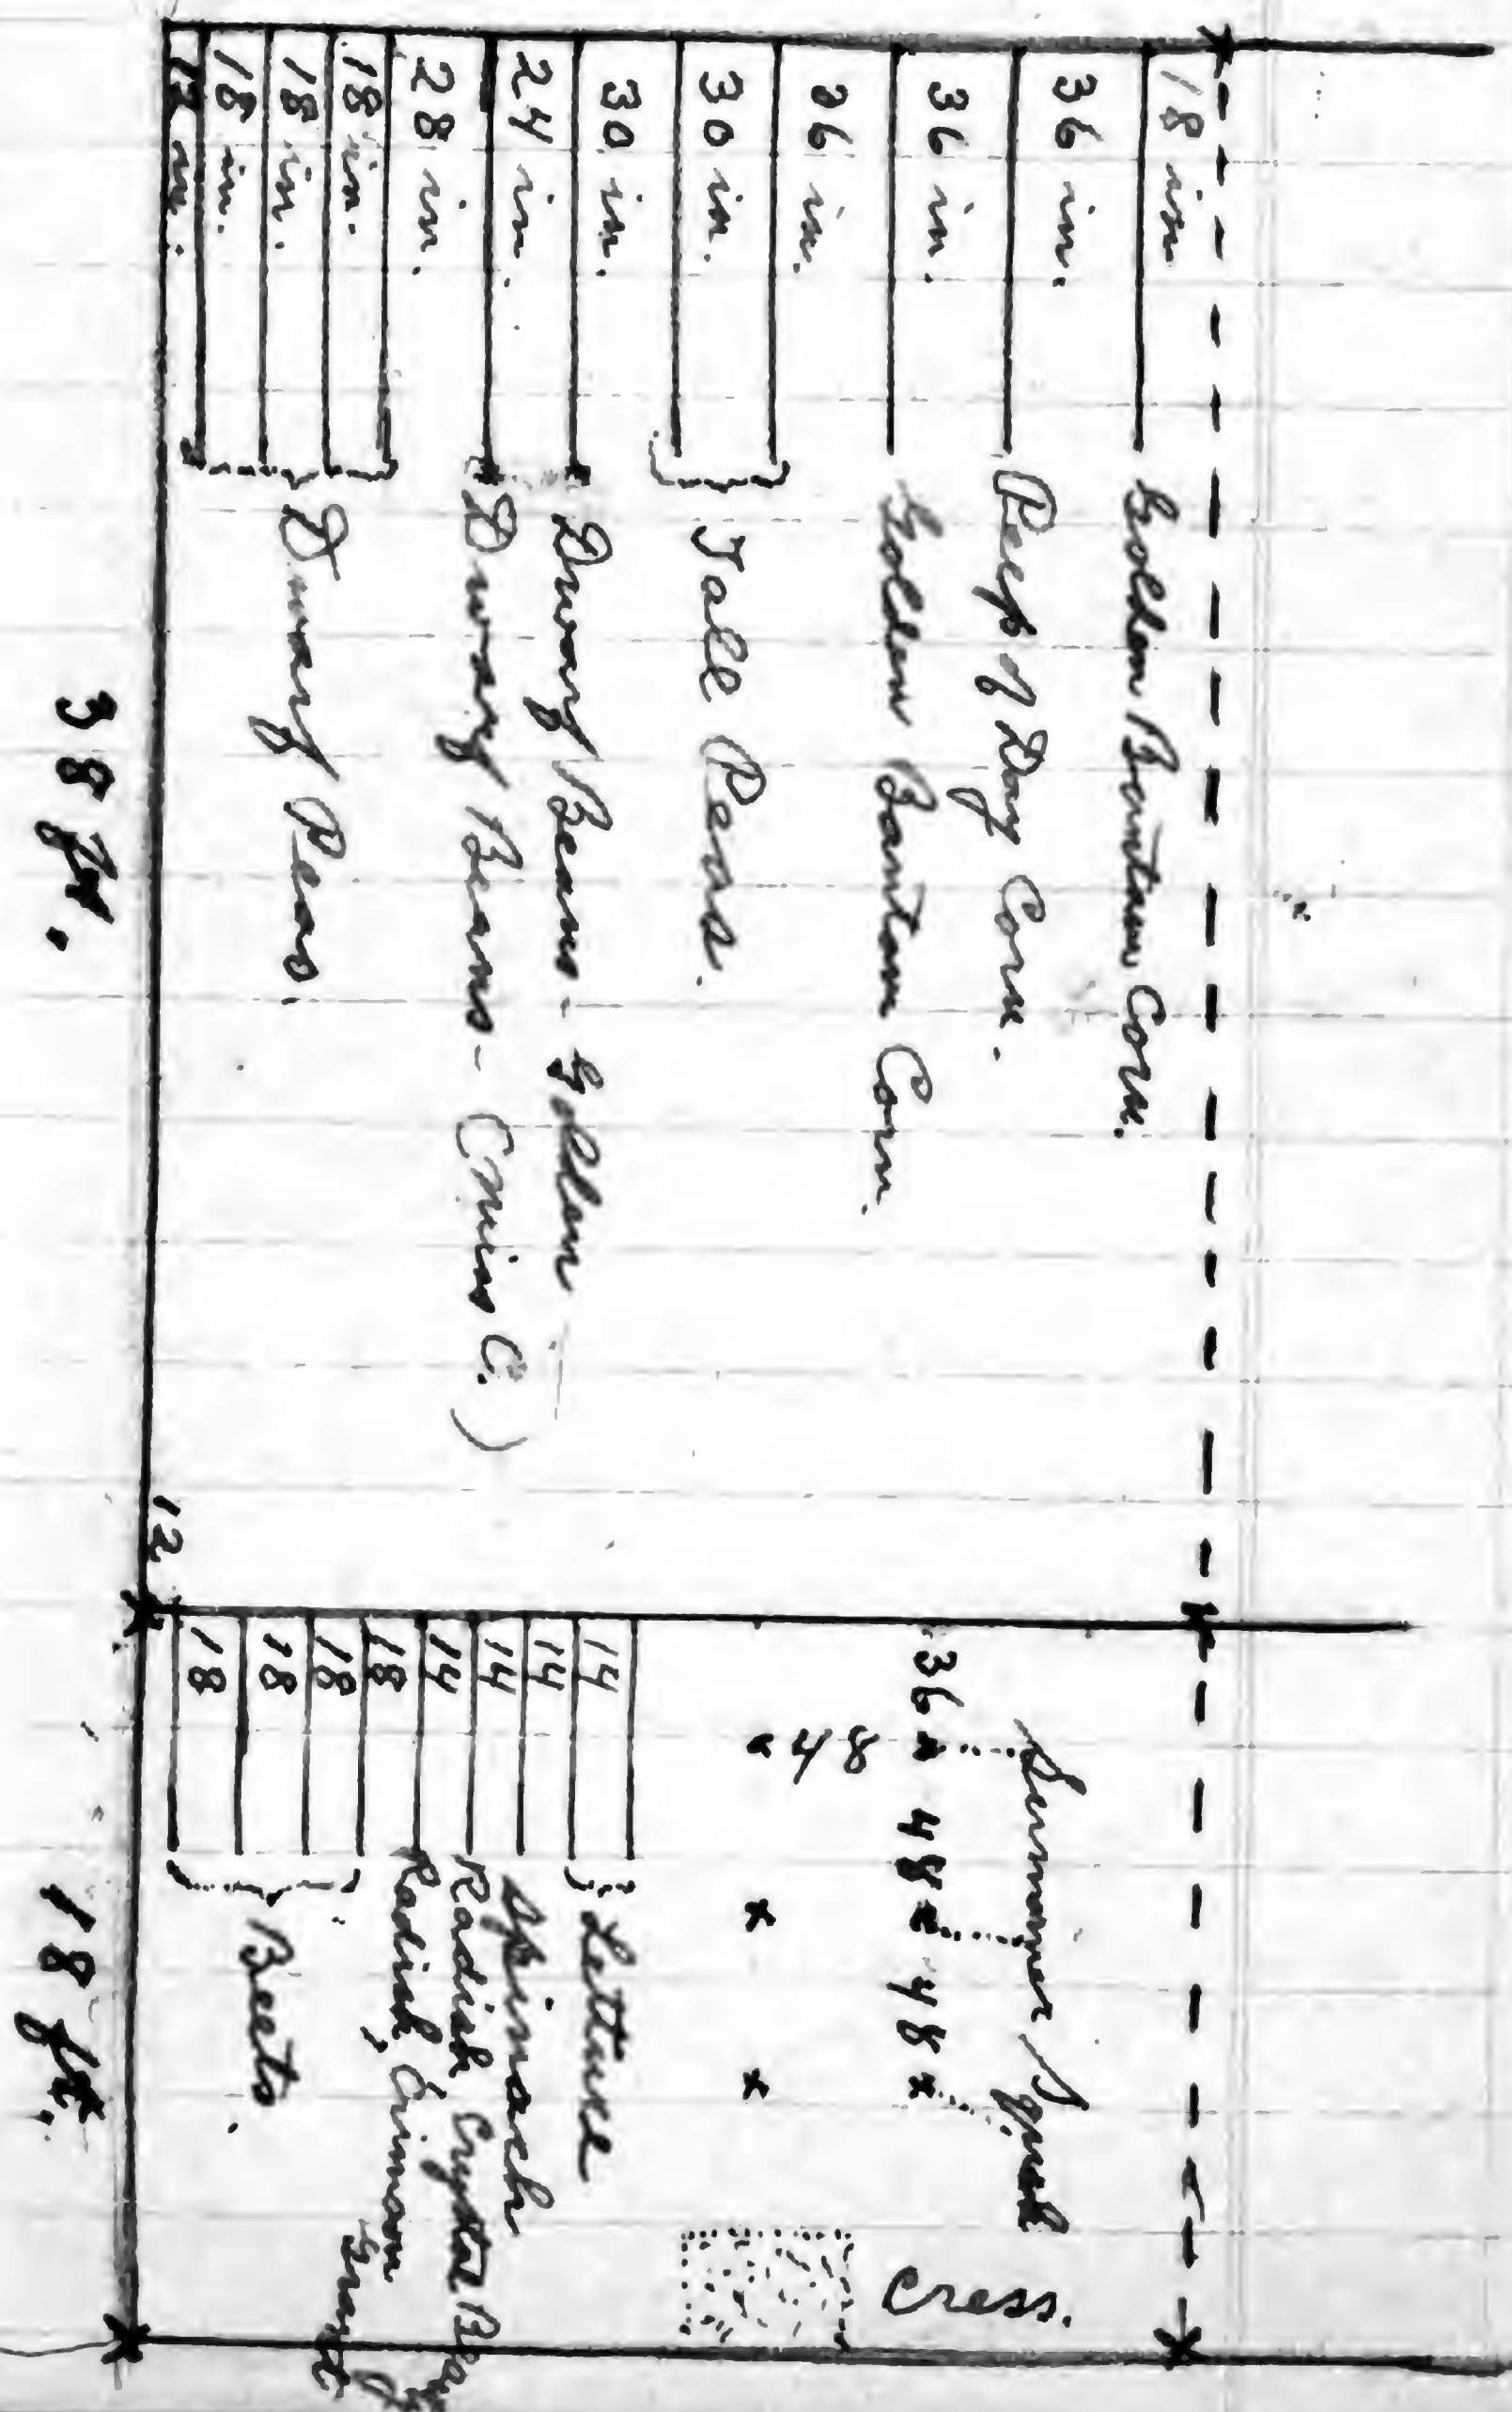 18 in
Golden Bantam Corn.
36 in.
Peep of Day Corn.
36 in.
Golden Bantam Corn.
36 in.
30 in.
Tall Peas.
30 in.
Dwarf Beans - Golden
24 in.
Dwarf Beans - (Miss C.)
28 in.
18 in.
18 in.
18 in.
Dwarf Peas.
12 in.
38 ft.
Summer Squash
36 x 48 x 48 x
48
x x x
Cress.
14
Lettuce
14
Spinach
14
Radish Crystal
14
Radish, Crimson Giant
18
18
18
18
Beets.
12
18 ft.